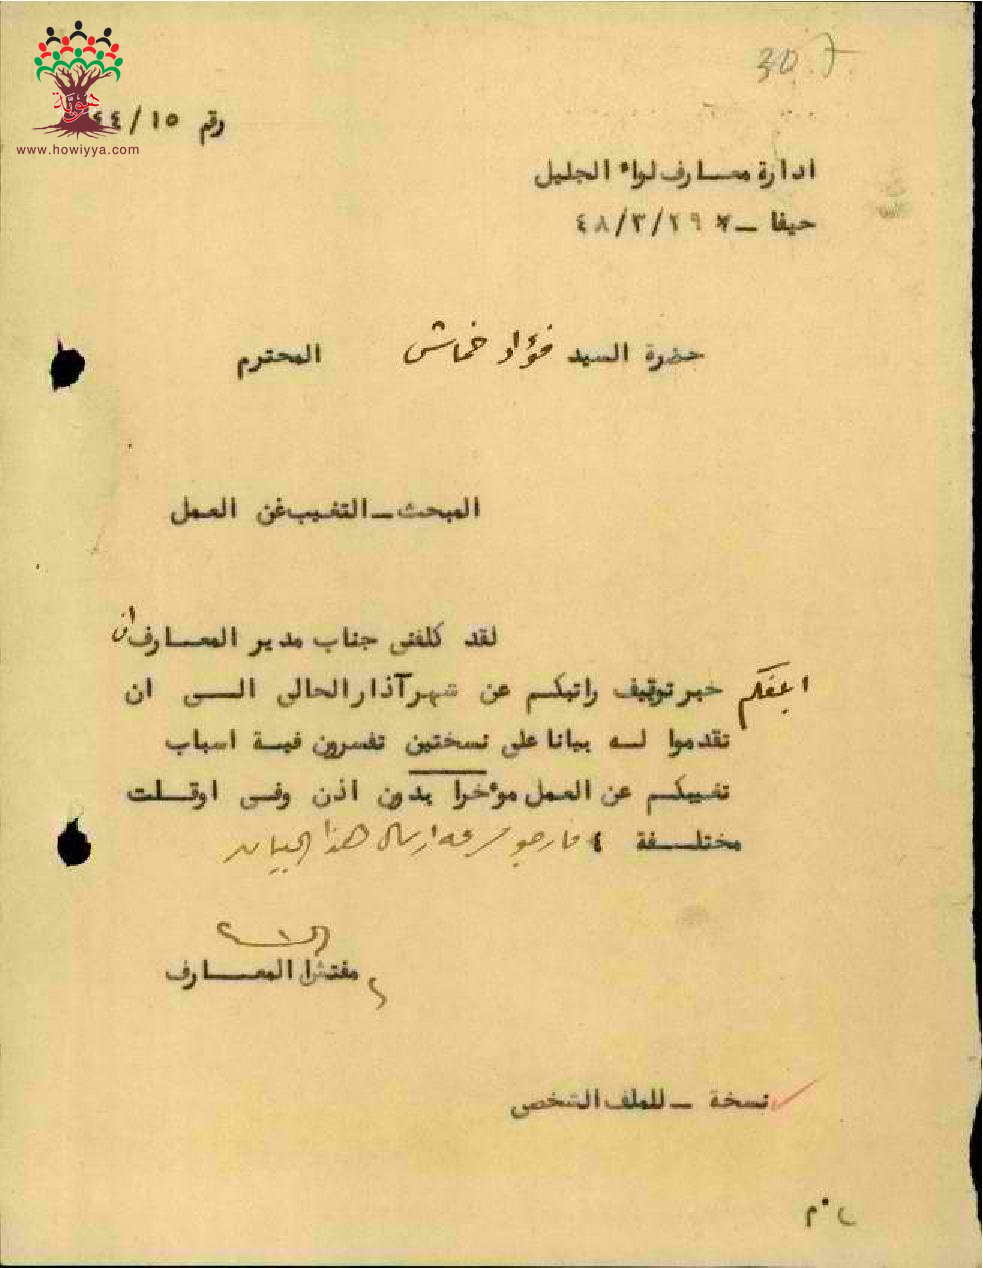 30
رقم ١٥/٤٤
هوية
www.howiyya.com
ادارة معارف لواء الجليل
حيفا – ٢٩/٣/٤٨
حضرة السيد فؤاد خماش المحترم
المبحث – التغيب غن العمل
لقد كلفني جناب مدير المعارف ان
ابلغكم خبر توقيف راتبكم عن شهر آذار الحالي الى ان
تقدموا له بيانا على نسختين تفسرون فية اسباب
تغيبكم عن العمل مؤخرا بدون اذن وفى اوقات
مختلفة ٤ فارجو سرعة ارسال هذا البيان
مفتش المعارف
نسخة – للملف الشخصي